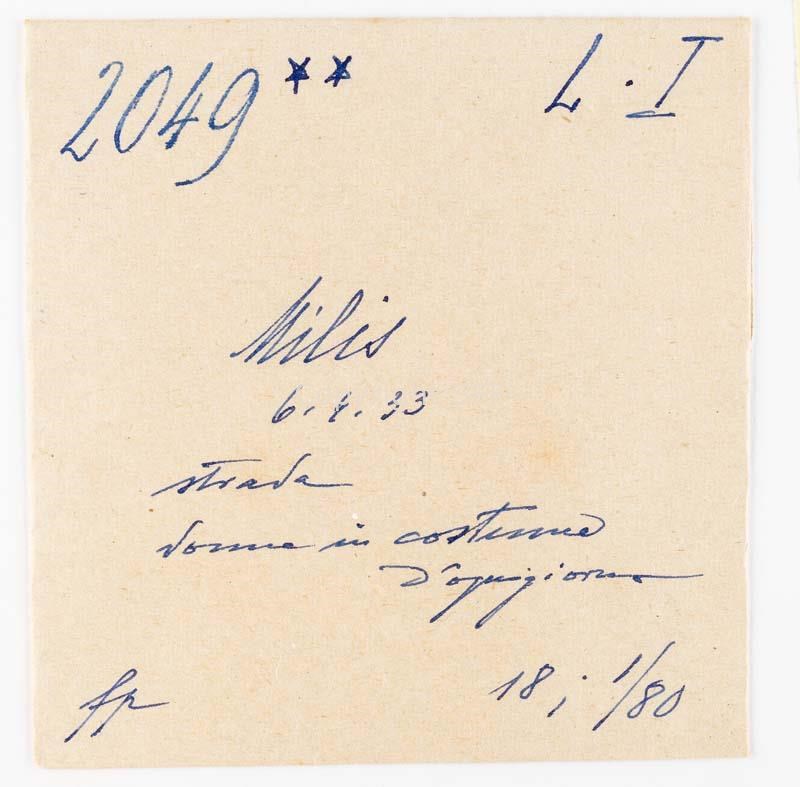 2049** L.I
Milis
6.4.33
strada
donne in costume
d'ognigiorno
fp 18; 1/80